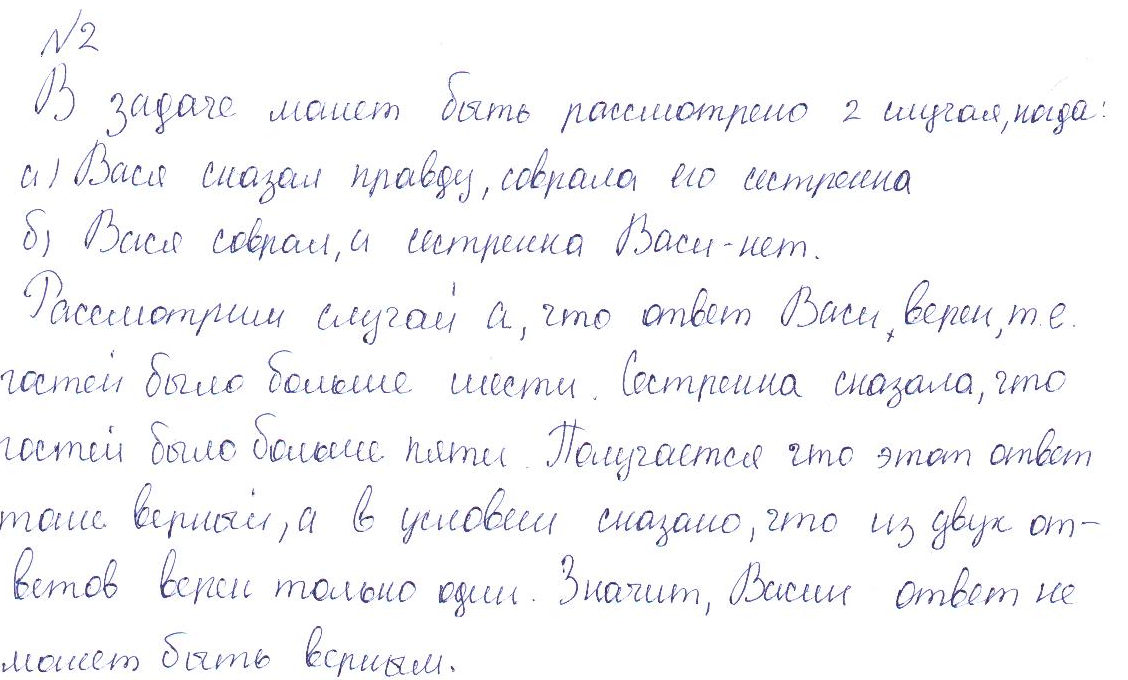 №2
В задаче может быть рассмотрено 2 случая, когда:
а) Вася сказал правду, соврала его сестренка
б) Вася соврал, а сестренка Васи - нет.
Рассмотрим случай а, что ответ Васи, верен, т.е.
гостей было больше шести. Сестренка сказала, что
гостей было больше пяти. Получается что этот ответ
тоже верный, а в условии сказано, что из двух от-
ветов верен только один. Значит, Васин ответ не
может быть верным.